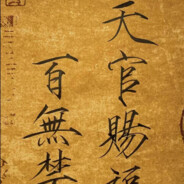 天官賜福
百無禁